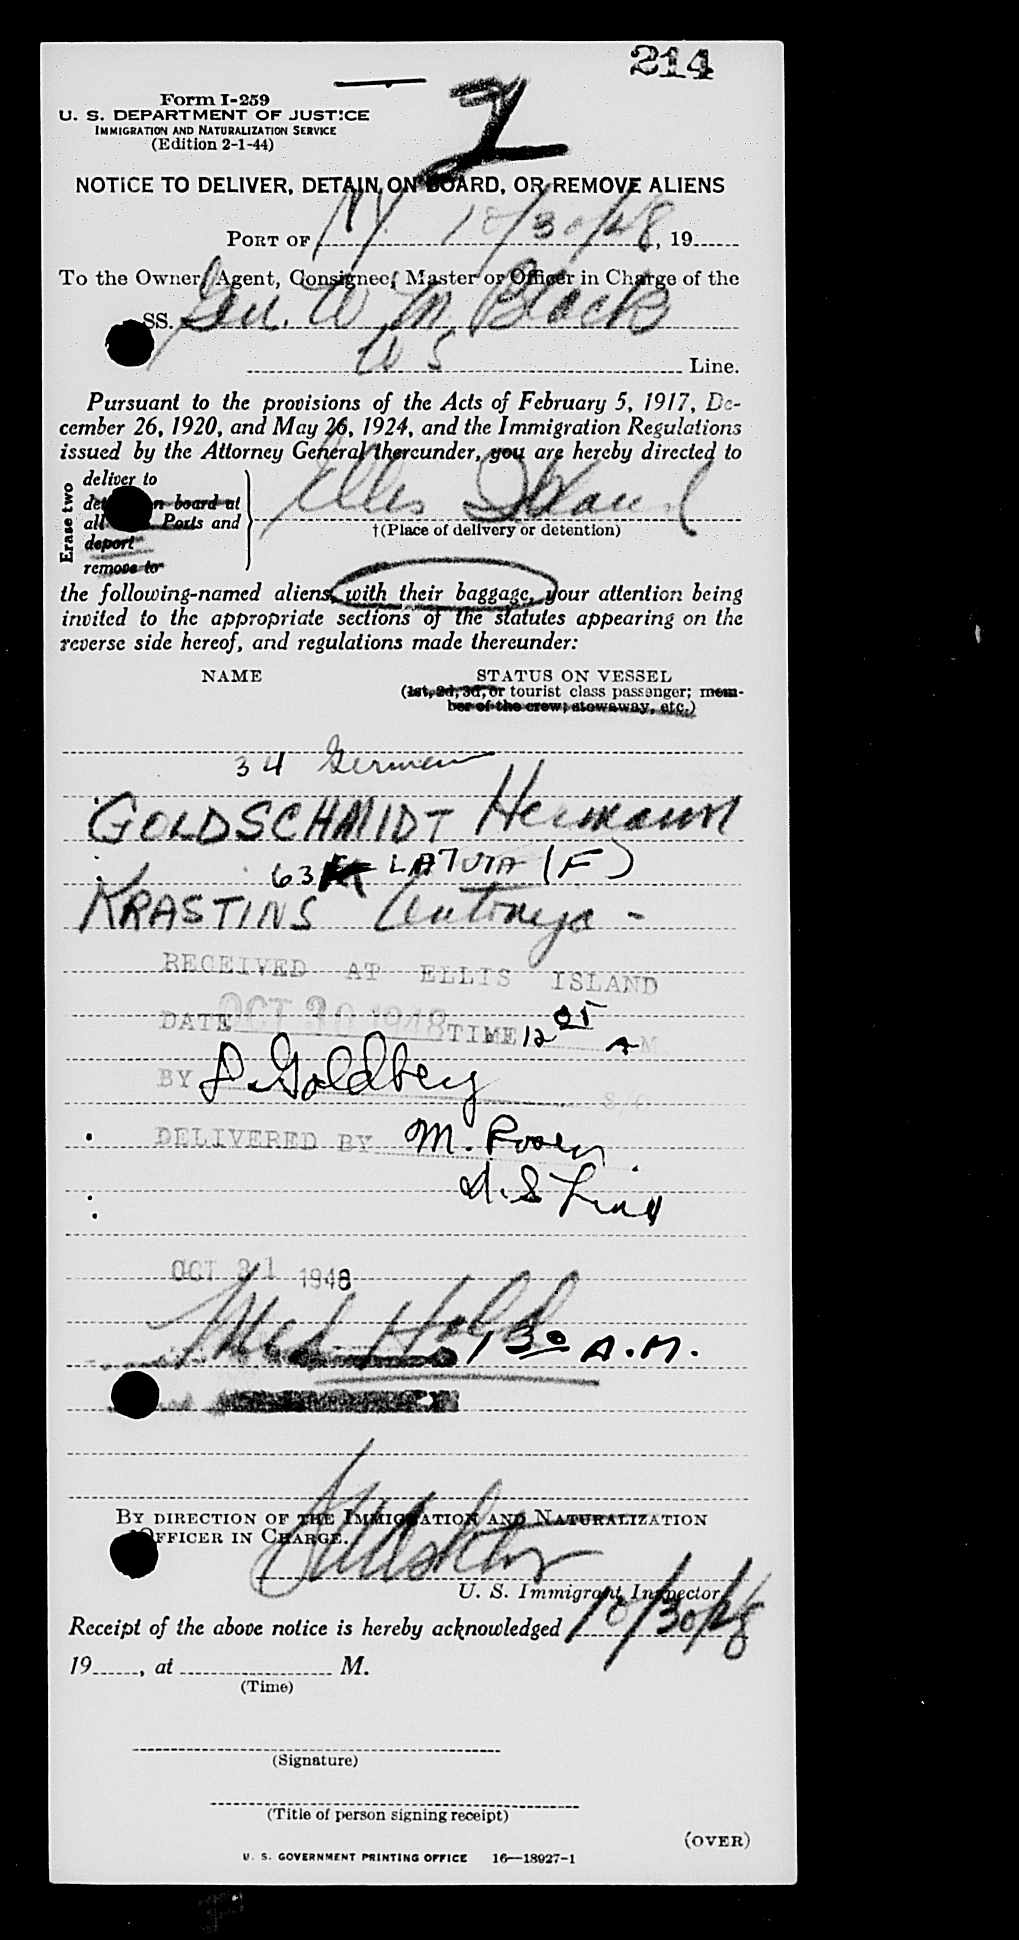 214
2
Form I-259
U. S. DEPARTMENT OF JUSTICE
IMMIGRATION AND NATURALIZATION SERVICE
(Edition 2-1-44)
NOTICE TO DELIVER, DETAIN ON BOARD, OR REMOVE ALIENS
PORT OF NY 10/30/48, 19
To the Owner, Agent, Consignee, Master or Officer in Charge of the
SS. Gen. W M Black
U S Line.
Pursuant to the provisions of the Acts of February 5, 1917, De-
cember 26, 1920, and May 26, 1924, and the Immigration Regulations
issued by the Attorney General thereunder, you are hereby directed to
Erase two
deliver to
on board at
all Ports and
deport
remove to
Ellis Island
†(Place of delivery or detention)
the following-named aliens, with their baggage, your attention being
invited to the appropriate sections of the statutes appearing on the
reverse side hereof, and regulations made thereunder:
NAME STATUS ON VESSEL
(1st, 2d, 3d, or tourist class passenger; mem-
ber of the crew; stowaway, etc.)
34 German
GOLDSCHMIDT Hermann
63 LATVIA (F)
KRASTINS Antonija -
RECEIVED AT ELLIS ISLAND
DATE OCT 30 1948 TIME 12 05 A M.
BY Goldberg
DELIVERED BY M. Rosen
OCT 31 1948
Med Hold 1 30 A.M.
BY DIRECTION OF THE IMMIGRATION AND NATURALIZATION
OFFICER IN CHARGE.
U. S. Immigrant Inspector
Receipt of the above notice is hereby acknowledged 10/30/48
19, at M.
(Time)
(Signature)
(Title of person signing receipt)
(OVER)
U. S. GOVERNMENT PRINTING OFFICE 16—18927-1